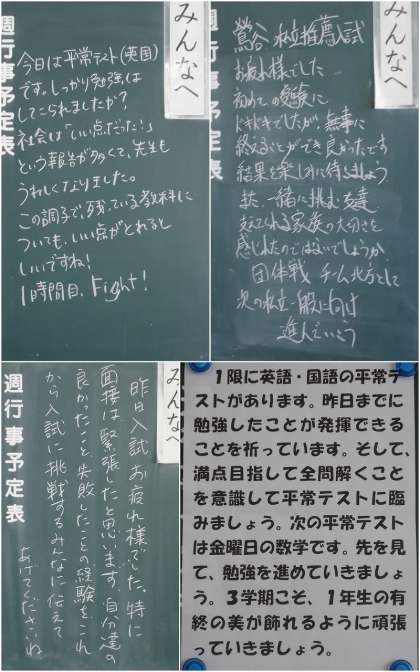 みんなへ
週行事予定表
今日は平常テスト(英国)
です。しっかり勉強は
してこられましたか?
社会は「いい点だった!」
という報告が多くて、先生も
うれしくなりました。
この調子で、残っている教科に
ついても、いい点がとれると
いいですね!
1時間目、Fight!
みんなへ
鶯谷・私立推薦入試
お疲れ様でした
初めての受験に
ドキドキでしたが、無事に
終えることができ良かったです
結果を楽しみに待ちましょう
また、一緒に挑む友達
支えてくれる家族の大切さを
感じれたのではないでしょうか
団体戦 チーム北方として
次の私立一般に向け
進んでいこう
みんなへ
週行事予定表
昨日入試お疲れ様でした。特に
面接は緊張したと思います。自分達の
良かったこと、失敗したことの経験を、これ
から入試に挑戦するみんなに伝えて
あげてくださいね
1限に英語・国語の平常テ
ストがあります。昨日までに
勉強したことが発揮できる
ことを祈っています。そして、
満点目指して全問解くこと
を意識して平常テストに臨
みましょう。次の平常テスト
は金曜日の数学です。先を見
て、勉強を進めていきましょ
う。3学期こそ、1年生の有
終の美が飾れるように頑張
っていきましょう。